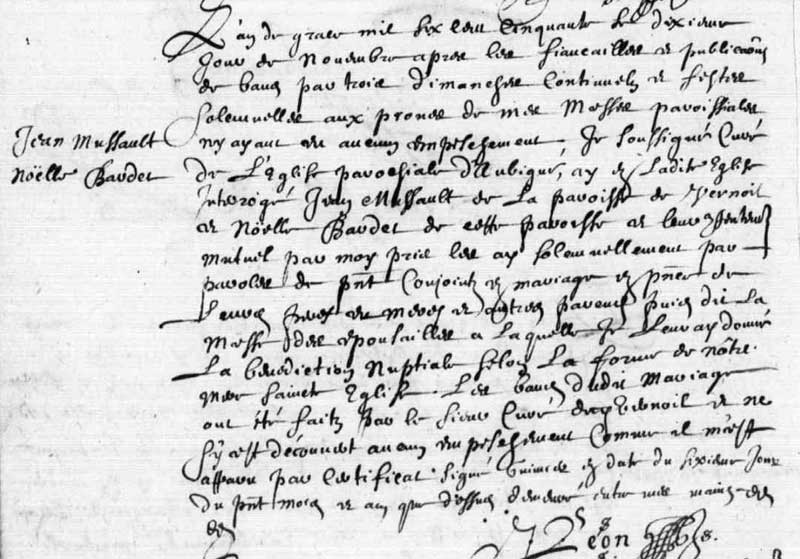 L'an de grace mil six cent cinquante le dixieme
Jour de Novembre apres les fiancailles et publicaons
de bans par trois dimanches Continuels et festes
solemnelles aux prones de mes Messes paroissiales
Jean Mussault
n'y ayant eu aucun empeschement, Je soussigné Curé
Nöelle Bardet
de L'Eglise parochiale d'Aubigné, ay en Ladite Eglise
Interrogé Jean Mussault de La paroisse de Vernoil
et Nöelle Bardet de cette paroisse et leur
mutuel par moy pris les ay solemnellement par
paroles de pnt Conjoints en mariage en pnce de
Leurs peres et meres et autres parens puis dit La
Messe des epousailles a Laquelle Je Leur ay donné
La benediction Nuptiale selon La forme de nôtre
mere saincte Eglise. Les bans dudit Mariage
ont été faits par le sieur Curé Vernoil et ne
s'y est découvert aucun empeschement Comme il m'est
apparu par Certificat signé en date du sixieme Jour
du pnt mois et an que dessus demeuré entre mes mains